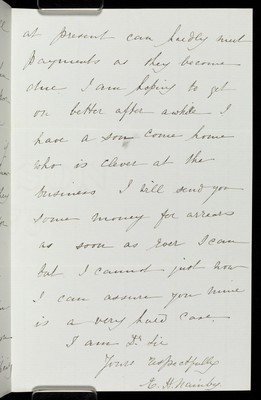 at present can hardly meet
payments as they become
due I am hoping to get
on better after awhile I
have a son come home
who is clever at the
business I will send you
some money for arrears
as soon as ever I can
but I cannot just now
I can assure you mine
is a very hard case.
I am Dr Sir
Yours respectfully
E. H.